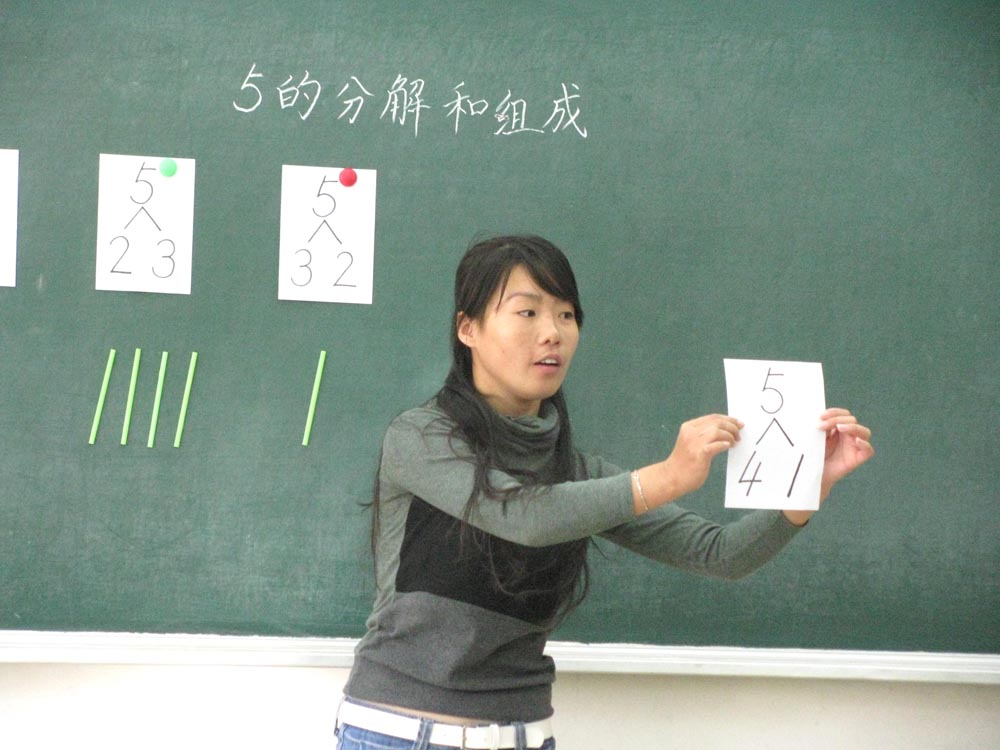 5的分解和组成
5
2 3
5
3 2
5
4 1